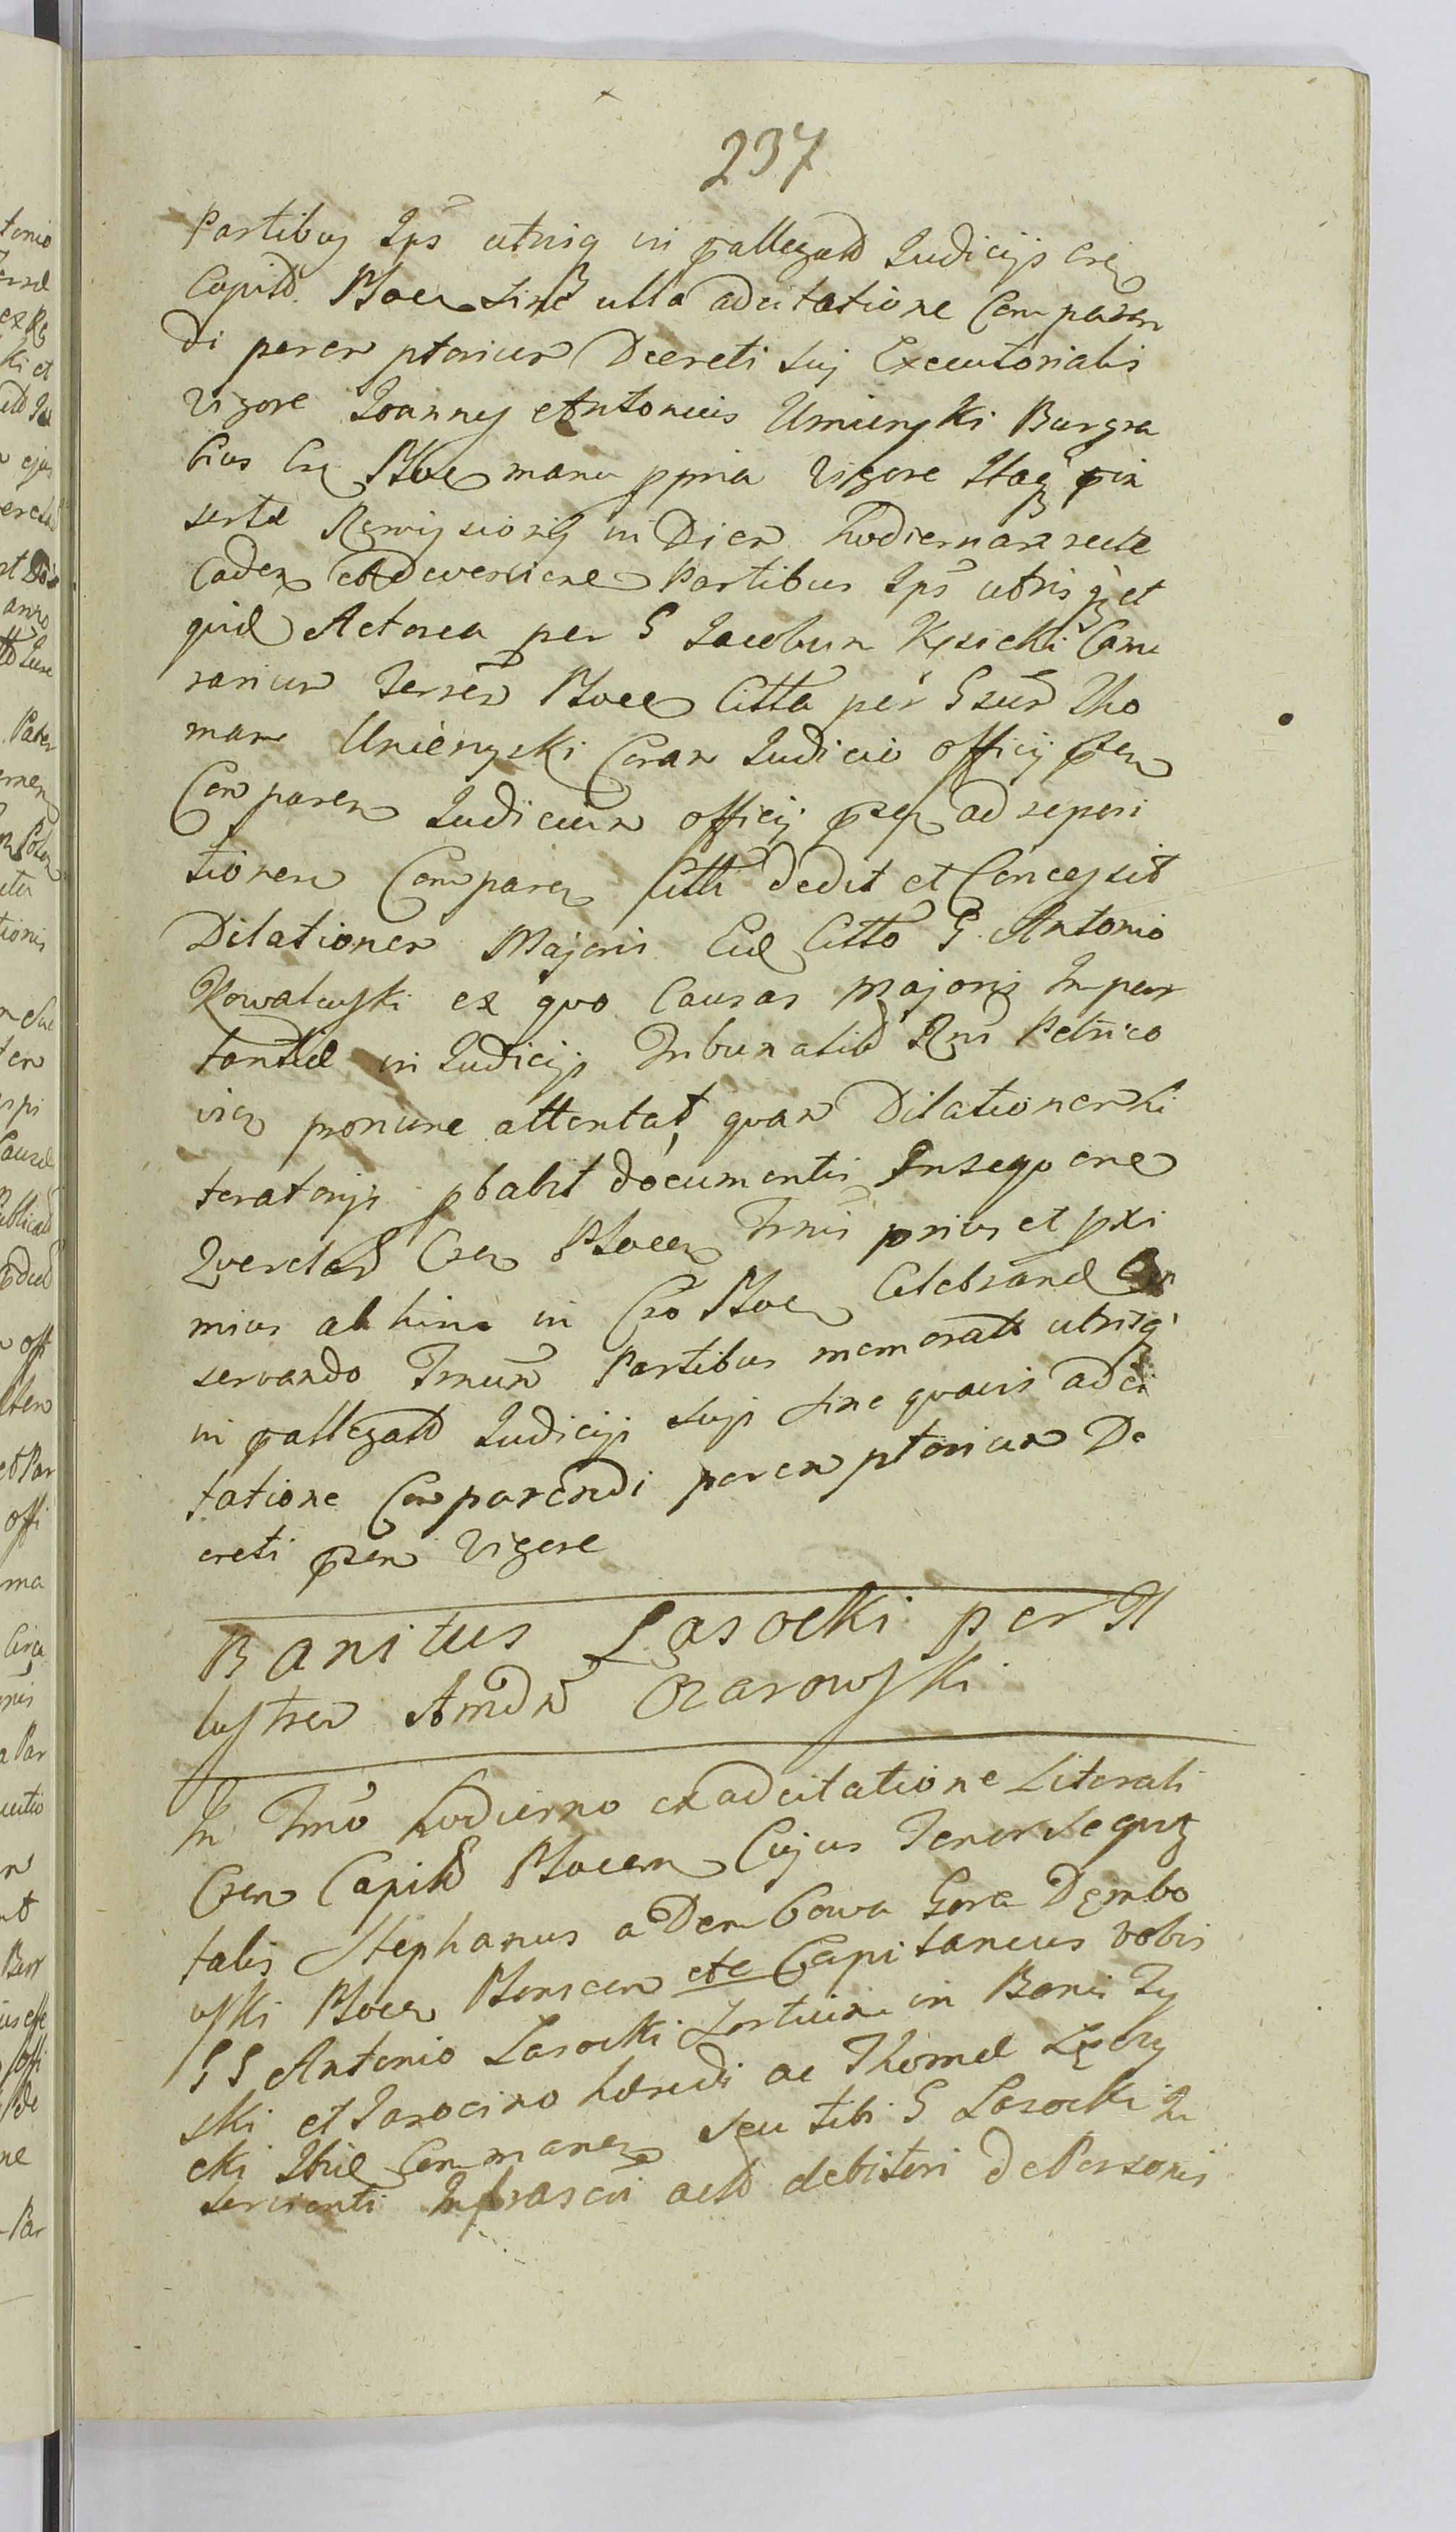 237
Partibus Ips utrisq in pallegatt Judicijs Crij
Capitt. Ploc. sine ulla adcitatione Comparen
di peremptorium Decreti sui Executorialis
Vigore Joannes Antonius Umienski Burgra
bius Cij Ploc manu ppria Vigore Itaq prin
sertæ Remissionis in Diem hodiernam recte
Caden Adveniene Partibus Ips utrisq et
quid Actorea per G Jacobum Kęsicki Came
rarium Terren Ploce Citta per Gsum Tho
mam Umienyski Coram Judicio officij psen
Comparen Judicium officij psen ad reperi
tionem Comparen Citti dedit et Concessit
Dilationem Majoris Eid Citto G. Antonio
Kowalewski ex quo Causas majoris Impor
tantiæ in Judicijs Tribunalitt Rni Petrico
vien promune attentat, quam Dilationem Li
teratorijs pbabit documentis Inseqvene
Querelar Cren Plocen Trnis prius et pxi
mius abhinc in Cro Ploc Celebrand Con
servando Trnum Partibus memoratt utrisq
in pallegatt Judicijs suis sine quavis adci
tatione Comparendi peremptorium De
creti psen Vigore
Banitus Lasocki per Il
lustrem Amdm Ozarowski
In Trno hodierno ex adcitatione Literali
Cren Capitt Plocen Cujus Tenor Sequitq
talis Stephanus a Dembowa Gora Dembo
wski Ploce Plonscen etc Capitaneus vobis
G G Antonio Lasocki sortium in Bonis Zy
ski et Jarocino hæredi ac Thomæ
cki Ibid Commanen seu tibi G Lasocki In
servienti Infrascri actt debitori de Personis